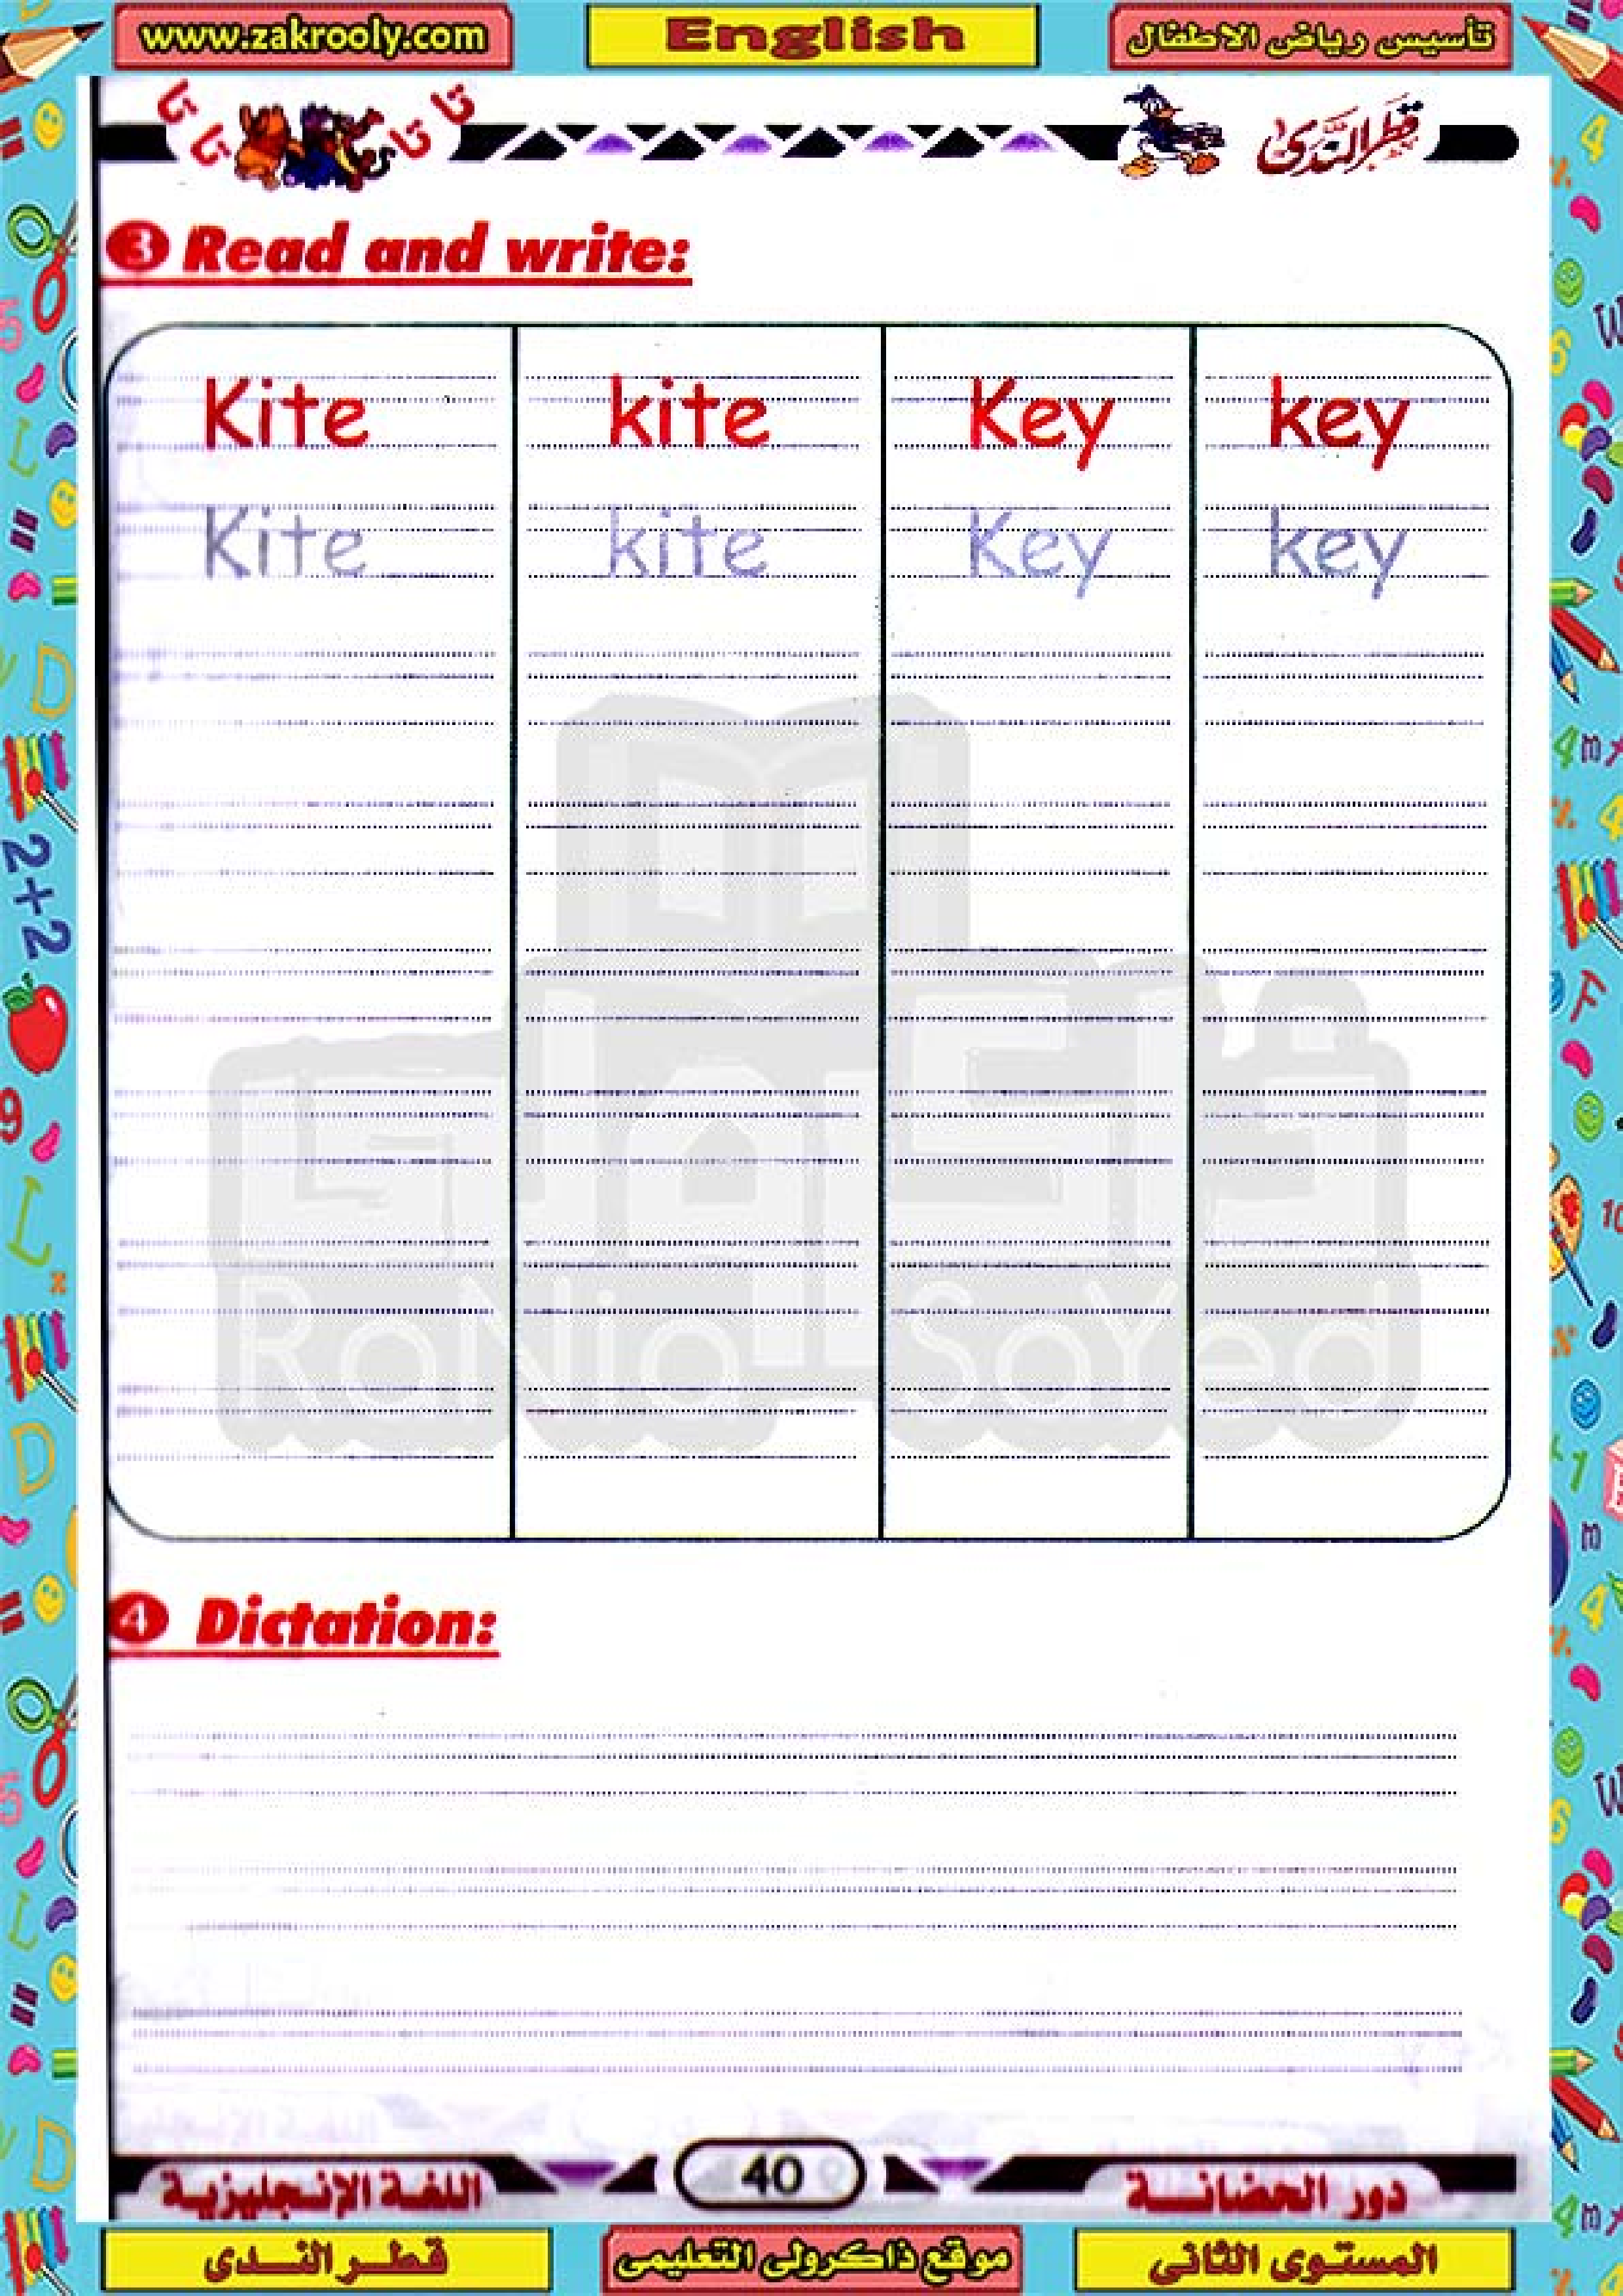 www.zakrooly.com English تأسيس رياض الاطفال
تا تا تا تا قطر الندى
3 Read and write:
Kite kite Key key
Kite kite Key key
RaNia SaYed
4 Dictation:
اللغة الإنجليزية 40 دور الحضانة
قطر الندى موقع ذاكرولى التعليمى المستوى الثانى